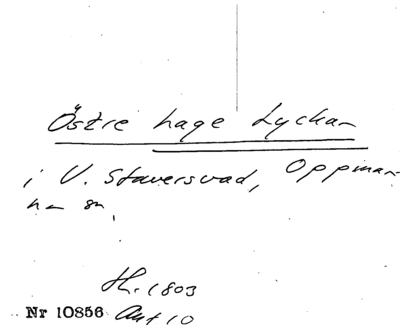 Östre hage Lyckan
i V. Staversvad, Oppman-
na sn,
th. 1803
Nr 10856 Akt 10